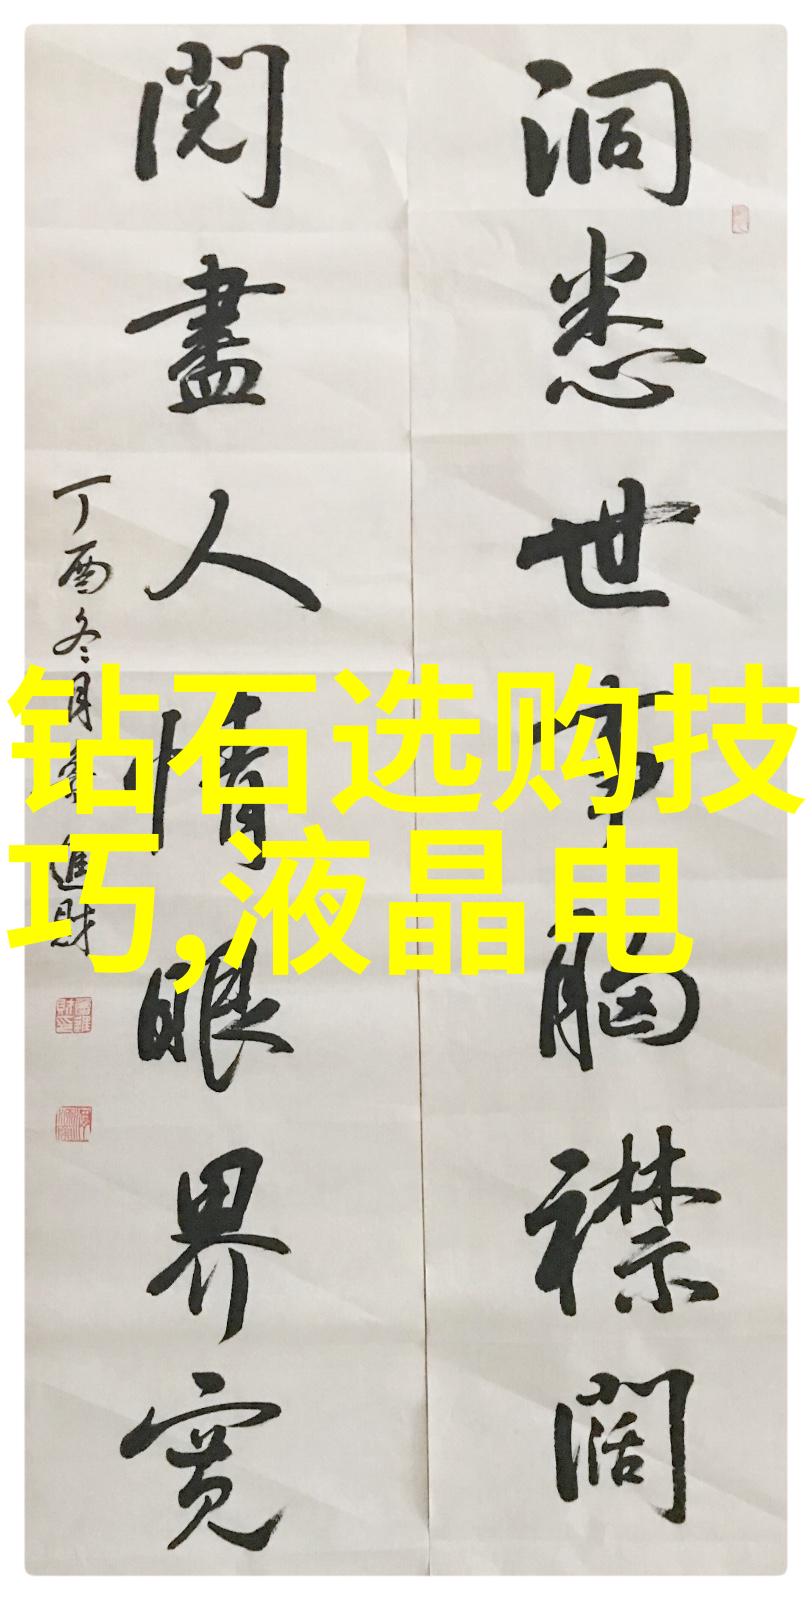 洞悉世事胸襟阔
閱盡人情眼界寬
丁酉冬月
進財
钻石选购技
巧,液晶电